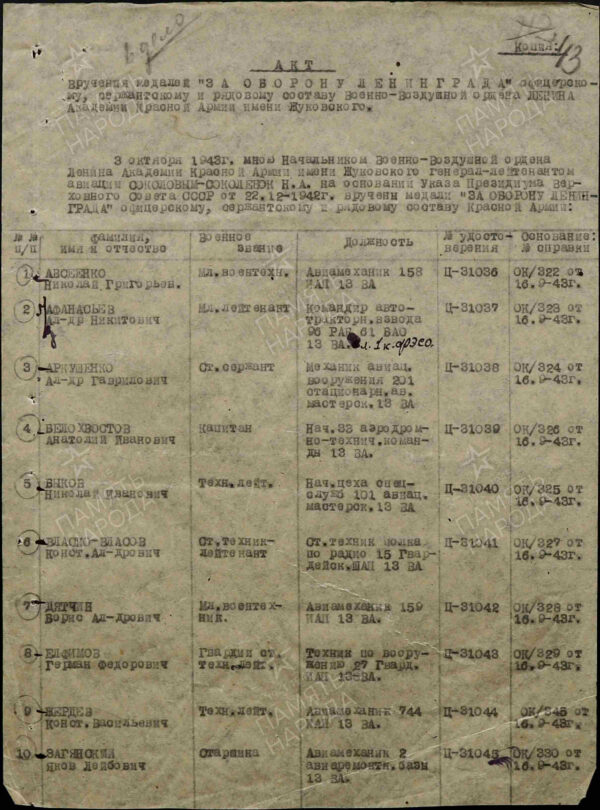 в дело
Копия:
43
АКТ
вручения медалей "ЗА ОБОРОНУ ЛЕНИНГРАДА" офицерско-
му, сержантскому и рядовому составу Военно-Воздушной ордена ЛЕНИНА
Академии Красной Армии имени Жуковского.
3 октября 1943г. мною Начальником Военно-Воздушной ордена
Ленина Академии Красной Армии имени Жуковского генерал-лейтенантом
авиации СОКОЛОВЫМ-СОКОЛЕНОК Н.А. на основании Указа Президиума Вер-
ховного Совета СССР от 22.12-1942г. вручены медали "ЗА ОБОРОНУ ЛЕНИН-
ГРАДА" офицерскому, сержантскому и рядовому составу Красной Армии:
№ № Фамилия, Военное Должность № удосто- Основание:
п/п имя и отчество звание верения № справки
1 АВСЕЕНКО Мл.воентехн. Авиамеханик 158 Ц-31036 ОК/322 от
Николай Григорьев. ИАП 13 ВА 16.9-43г.
2 АФАНАСЬЕВ Мл.лейтенант Командир авто- Ц-31037 ОК/323 от
Ал-др Никитович тракторн.взвода 16.9-43г.
96 РАБ 61 БАО
13 ВА.
3 АРКУШЕНКО Ст.сержант Механик авиац. Ц-31038 ОК/324 от
Ал-др Гаврилович вооружения 201 16.9-43г.
стационарн.ав.
мастерск.13 ВА
4 БЕЛОХВОСТОВ Капитан Нач.33 аэродром- Ц-31039 ОК/326 от
Анатолий Иванович но-технич.коман- 16.9-43г.
ды 13 ВА.
5 БЫКОВ Техн.лейт. Нач.цеха спец- Ц-31040 ОК/325 от
Николай Иванович служб 101 авиац. 16.9-43г.
мастерск.13 ВА
6 ВЛАСКО-ВЛАСОВ Ст.техник- Ст.техник полка Ц-31041 ОК/327 от
Конст.Ал-дрович лейтенант по радио 15 Гвар- 16.9-43г.
дейск.ШАП 13 ВА
7 ДЯТЧИН Мл.воентех- Авиамеханик 159 Ц-31042 ОК/328 от
Борис Ал-дрович ник. ИАП 13 ВА. 16.9-43г.
8 ЕФИМОВ Гвардии ст. Техник по воору- Ц-31043 ОК/329 от
Герман Федорович техн.лейт. жению 27 Гвард. 16.9-43г.
ИАП 13-ВА.
9 ЖЕРДЕВ Техн.лейт. Авиамеханик 744 Ц-31044 ОК/345 от
Конст.Васильевич ИАП 13 ВА. 16.9-43г.
10 ЗАГЯНСКИЙ Старшина Авиамеханик 2 Ц-31045 ОК/330 от
Яков Лейбович авиаремонтн.базы 16.9-43г.
13 ВА.
ПАМЯТЬ НАРОДА